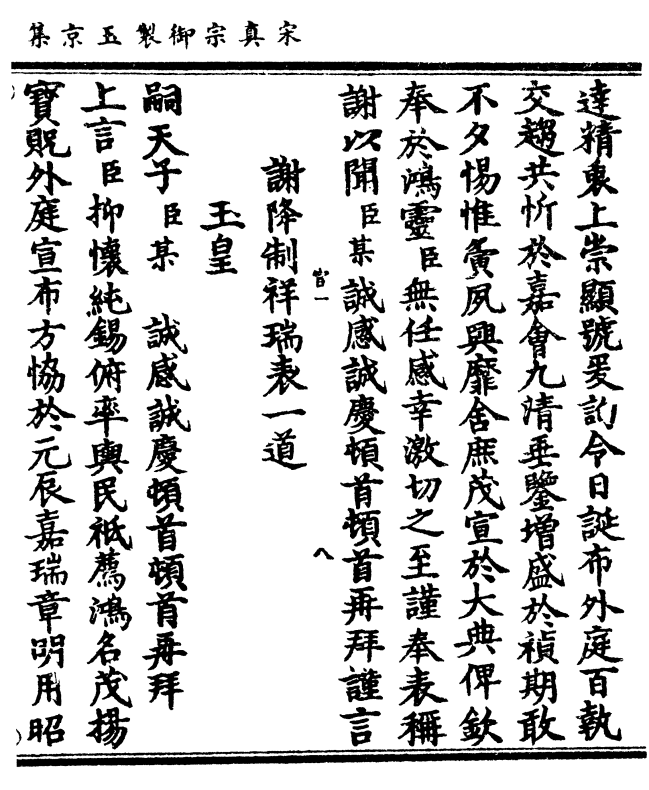 宋真宗御製玉京集
達精衷上崇顯號爰訃令日誕布外庭百執
交趨共忻於嘉會九清垂鑒增盛於禎期敢
不夕惕惟夤夙興靡舍庶茂宣於大典俾欽
奉於鴻靈臣無任感幸激切之至謹奉表稱
謝以聞臣某誠感誠慶頓首頓首再拜謹言
謝降制祥瑞表一道
玉皇
嗣天子臣某 誠感誠慶頓首頓首再拜
上言臣抑懷純錫俯率輿民祗薦鴻名茂揚
寶貺外庭宣布方恊於元辰嘉瑞章明用昭